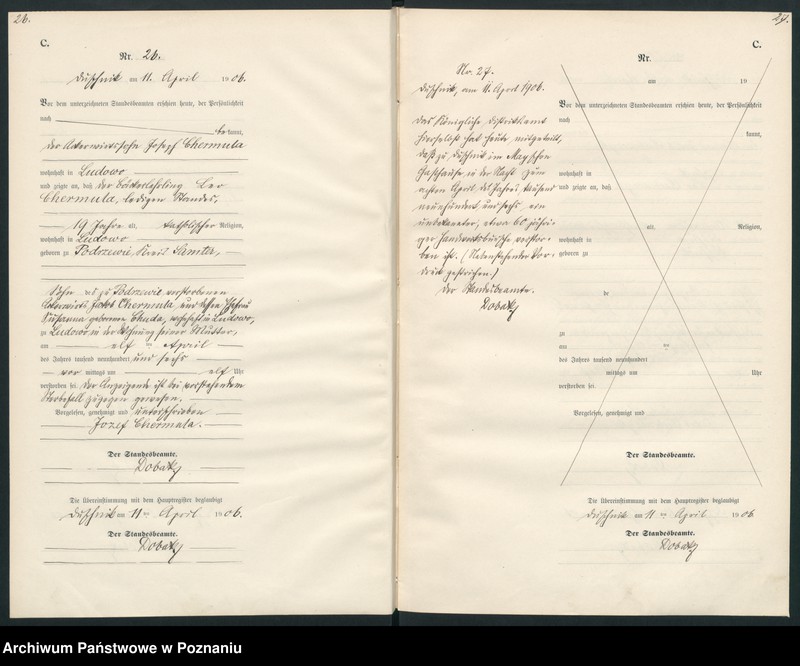 26.
C.
Nr. 26.
Duschnik am 11. April 1906.
Vor dem unterzeichneten Standesbeamten erschien heute, der Persönlichkeit
nach
be kannt,
der Ackerwirtssohn Josef Chermula
wohnhaft in Ludowo
und zeigte an, daß der Bäckerlehrling Leo
Chermula, ledigen Standes,
19 Jahre alt, katholischer Religion,
wohnhaft in Ludowo
geboren zu Podrzewie Kreis Samter,
Sohn des zu Podrzewie verstorbenen
Ackerwirts Jakob Chermula und dessen Ehefrau
Susanna geborene Skuda, wohnhaft in Ludowo,
zu Ludowo, in der Wohnung seiner Mutter,
am elf ten April
des Jahres tausend neunhundert und sechs
vor mittags um elf Uhr
verstorben sei. Der Anzeigende ist bei vorstehendem
Sterbefall zugegen gewesen.
Vorgelesen, genehmigt und unterschrieben
Jozef Chermula.
Der Standesbeamte.
Dobatz
Die Übereinstimmung mit dem Hauptregister beglaubigt
Duschnik am 11 ten April 1906.
Der Standesbeamte.
Dobatz
27.
C.
Nr.
am 19
Vor dem unterzeichneten Standesbeamten erschien heute, der Persönlichkeit
nach
kannt,
wohnhaft in
und zeigte an, daß
alt, Religion,
wohnhaft in
geboren zu
de
zu
am ten
des Jahres tausend neunhundert
mittags um Uhr
verstorben sei.
Vorgelesen, genehmigt und
Der Standesbeamte.
No. 27.
Duschnik, am 11. April 1906.
Das Königliche Distriktsamt
hierselbst hat heute mitgeteilt,
daß zu Duschnik im
Gasthause, in der Nacht zum
achten April des Jahres tausend
neunhundert und sechs, ein
unbekannter, etwa 60 jähri-
ger Handwerksbursche verstor-
ben ist. (Nebenstehender Vor-
druck gestrichen.)
Der Standesbeamte.
Dobatz
Die Übereinstimmung mit dem Hauptregister beglaubigt
Duschnik am 11 ten April 1906.
Der Standesbeamte.
Dobatz
Archiwum Państwowe w Poznaniu